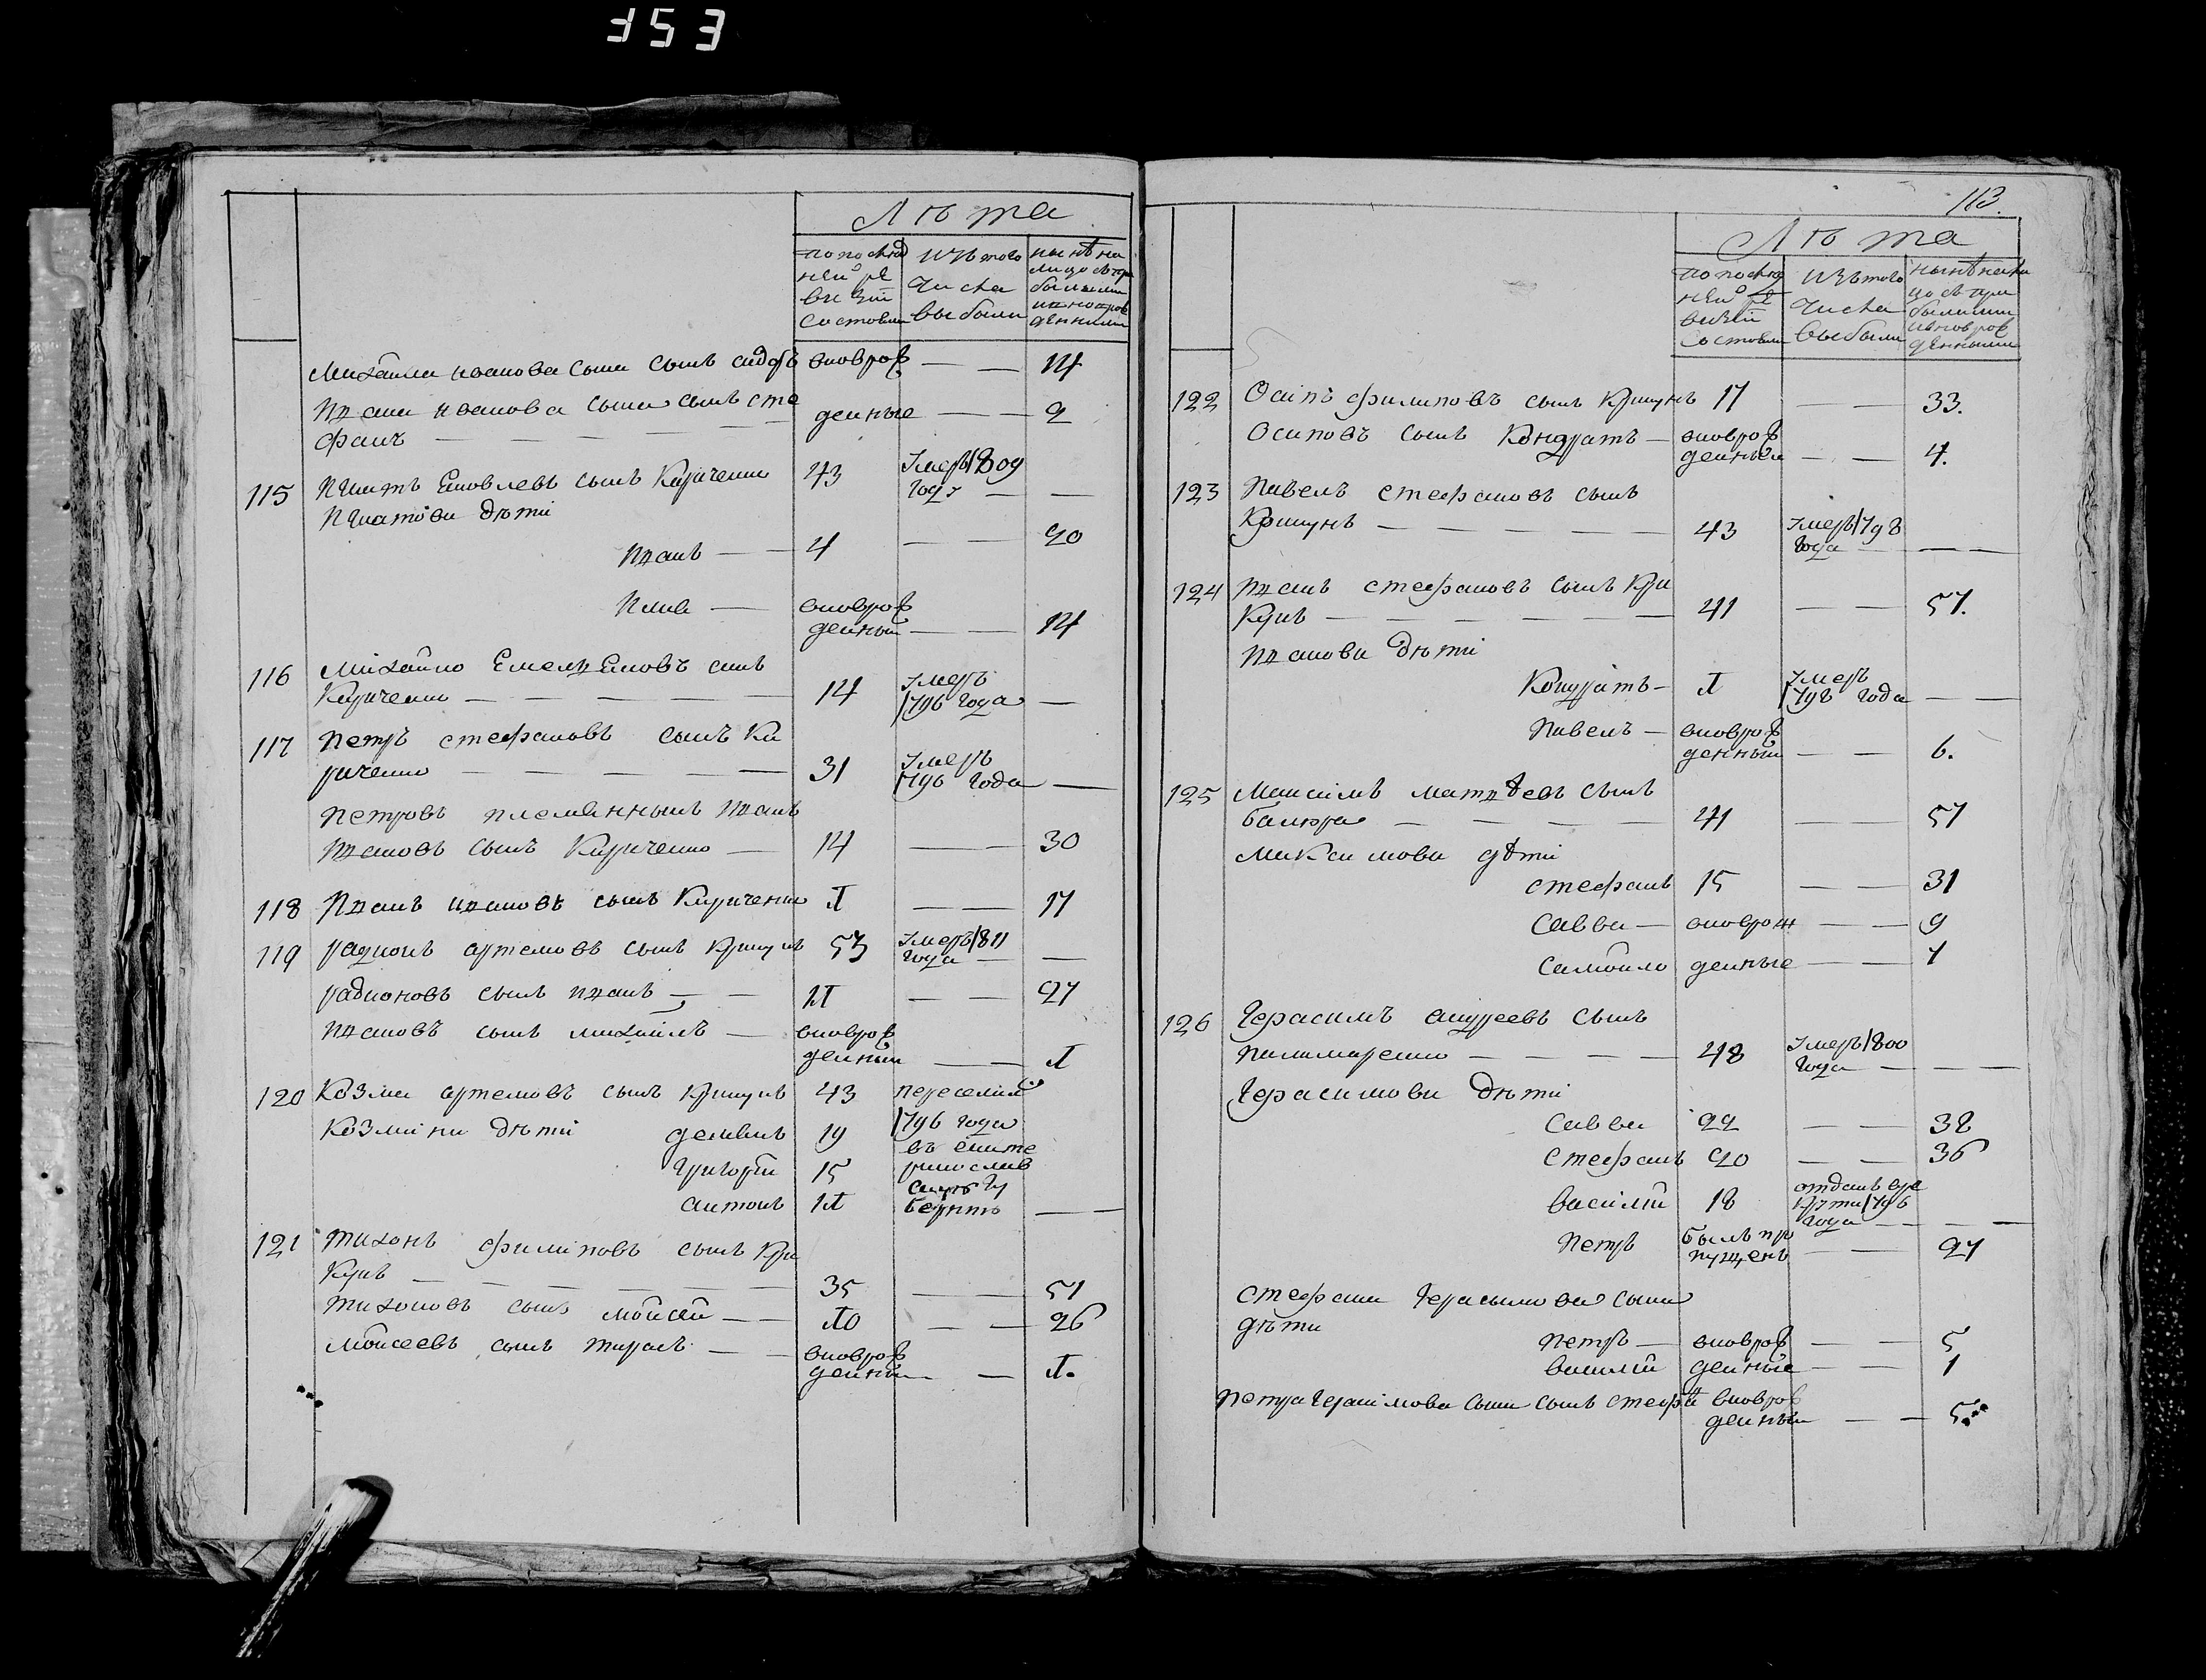 353
Лѣта
попослед
ней ре
визіи
состояли
изътого
числа
выбыли
нынѣ на
лицо съ при
былыми
иноворож
денными
Михайла иванова сына сынъ сидоръ вноврож 14
Ивана иванова сына сынъ сте денные 2
фанъ
115 Игнатъ Яковлевъ сынъ Кириченко 43 Умеръ 1809
году
Игнатови дѣти
Иванъ 4 20
Илия вноврож
денный 14
116 Михайло Емельяновъ сынъ
Кириченко 14 Умеръ
1796 года
117 Петръ стефановъ сынъ Ки
риченко 31 Умеръ
1796 года
Петровъ племянникъ Иванъ
Ивановъ сынъ Кириченко 14 30
118 Иванъ ивановъ сынъ Кириченко 1 17
119 радионъ артемовъ сынъ крикунъ 53 Умеръ 1811
года
радионовъ сынъ иванъ 11 27
Ивановъ сынъ михайлъ вноврож
денный 1
120 Козма артемовъ сынъ крикунъ 43 переселилис
Козмини дѣти демянъ 19 1796 года
въ екате
григорій 15 ринослав
скую гу
антонъ 11 бернію
121 тихонъ филиповъ сынъ кри
кунъ 35 51
тихоновъ сынъ мойсей 10 26
мойсеевъ сынъ тарасъ вноврож
денный 1.
113.
Лѣта
попослед
ней ре
визіи
состояли
изътого
числа
выбыли
нынѣ нали
цо съ при
былыми
иноворож
денными
122 Осипъ филиповъ сынъ крикунъ 17 33.
Осиповъ сынъ Кондратъ вноврож
денный 4.
123 Павелъ стефановъ сынъ
Крикунъ 43 Умеръ 1798
года
124 Иванъ стефановъ сынъ Кри
кунъ 41 57.
Иванови дѣти
Кондратъ 1 Умеръ
1798 года
Павелъ вноврож
денный 6.
125 Максимъ матвѣевъ сынъ
балюра 41 57
Максимови дѣти
стефанъ 15 31
Савва вноврож 9
Самойло денные 1
126 Герасимъ андреевъ сынъ
паламаренко 48 Умеръ 1800
года
Герасимови дѣти
Савва 22 38
Стефанъ 20 36
василій 18 отданъ врe
круты 1796
года
Петръ былъ про
пущенъ 27
Стефана Герасимова сына
дѣти
Петръ вноврож 5
василій денные 1
Петра Герасимова сына сынъ стефа вноврож
денный 5